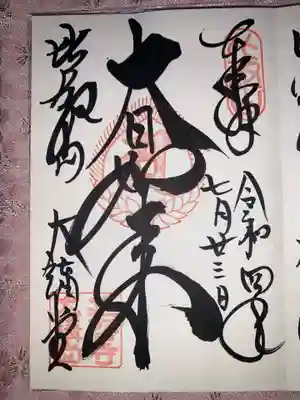 奉拝
令和四年
七月廿三日
大日如来
比叡山
大講堂